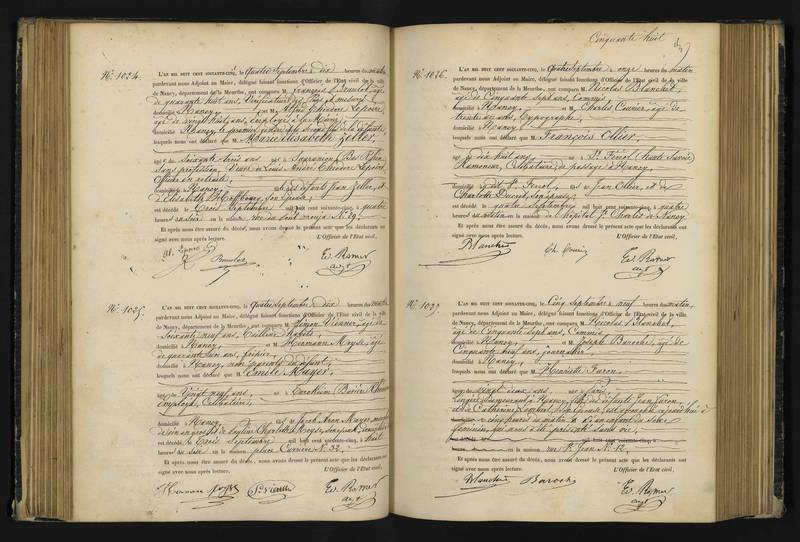 N°. 1024.
L'AN MIL HUIT CENT SOIXANTE-CINQ, le quatre Septembre à dix heures du matin
pardevant nous Adjoint au Maire, délégué faisant fonctions d'Officier de l'Etat civil de la ville
de Nancy, département de la Meurthe, ont comparu M. François âgé
de quarante huit ans, Vérificateur des Poids et mesures
domicilié à Nancy, et M. Théodore Lapoire
âgé de vingt huit ans, employé à la Mairie
domicilié à Nancy, le premier et le second fils de la défunte
lesquels nous ont déclaré que M. Marie Elisabeth Zeller,
âgée de soixante-trois ans née à (Bas Rhin)
sans profession, Veuve de Louis Théodore Lapoire,
Officier en retraite
domiciliée à Nancy, des défunts Jean Zeller, et
d'Elisabeth Hoffbourg, son épouse,
est décédée le trois Septembre mil huit cent soixante-cinq, à quatre
heures du soir en la maison rue du N°. 29.
Et après nous être assuré du décès, nous avons dressé le présent acte que les déclarants ont
signé avec nous après lecture. L'Officier de l'Etat civil,
Ev. Ramer
adjt
N°. 1025.
L'AN MIL HUIT CENT SOIXANTE-CINQ, le quatre Septembre à dix heures du matin
pardevant nous Adjoint au Maire, délégué faisant fonctions d'Officier de l'Etat civil de la ville
de Nancy, département de la Meurthe, ont comparu M. Simon âgé de
soixante neuf ans, Tailleur d'habits,
domicilié à Nancy et M. Hermann Moyse âgé
de quarante un ans, fripier,
domicilié à Nancy, non parents du défunt
lesquels nous ont déclaré que M. Emile Mayer,
âgé de vingt neuf ans, né à
employé, Célibataire,
domicilié à Nancy, fils de Jacob Aron Mayer
est décédé le trois Septembre mil huit cent soixante-cinq, à huit
heures du soir en la maison place Carrière N°. 32.
Et après nous être assuré du décès, nous avons dressé le présent acte que les déclarants ont
signé avec nous après lecture. L'Officier de l'Etat civil,
Ev. Ramer
adjt
Cinquante huit
N°. 1026.
L'AN MIL HUIT CENT SOIXANTE-CINQ, le quatre Septembre à onze heures du matin
pardevant nous Adjoint au Maire, délégué faisant fonctions d'Officier de l'Etat civil de la ville
de Nancy, département de la Meurthe, ont comparu M. Nicolas Blanchet,
âgé de Cinquante sept ans, Commis
domicilié à Nancy, et M. Charles Courier, âgé de
trente un ans, typographe,
domicilié à Nancy,
lesquels nous ont déclaré que M. François Ollier,
âgé de dix huit ans né à St. Ferriol (haute Savoie)
Ramoneur, Célibataire, de passage à Nancy,
domicilié à St. Ferriol, fils de Jean Ollier, et de
Charlotte son épouse,
est décédé le quatre Septembre mil huit cent soixante-cinq, à quatre
heures du matin en la maison de l'hôpital St. Charles de Nancy
Et après nous être assuré du décès, nous avons dressé le présent acte que les déclarants ont
signé avec nous après lecture. L'Officier de l'Etat civil,
Blanchet
Ch. Courier
Ev. Ramer
adjt
N°. 1027.
L'AN MIL HUIT CENT SOIXANTE-CINQ, le Cinq Septembre à neuf heures du matin,
pardevant nous Adjoint au Maire, délégué faisant fonctions d'Officier de l'Etat civil de la ville
de Nancy, département de la Meurthe, ont comparu M. Nicolas Blanchet,
âgé de Cinquante sept ans, Commis,
domicilié à Nancy, et M. Joseph Baroche, âgé de
Cinquante neuf ans, journalier,
domicilié à Nancy,
lesquels nous ont déclaré que M. Henriette Faron,
âgée de vingt deux ans, née à
Lingère, demeurant à Nancy, fille de défunts Jean Faron,
et de Catherine Lambert, son épouse, est accouchée aujourd'hui à
cinq heures du matin d'un enfant du sexe
féminin, qui nous a été présenté sans vie,
en la maison rue St. Jean N°. 12.
Et après nous être assuré du décès, nous avons dressé le présent acte que les déclarants ont
signé avec nous après lecture. L'Officier de l'Etat civil,
Blanchet
Baroche
Ev. Ramer
adjt